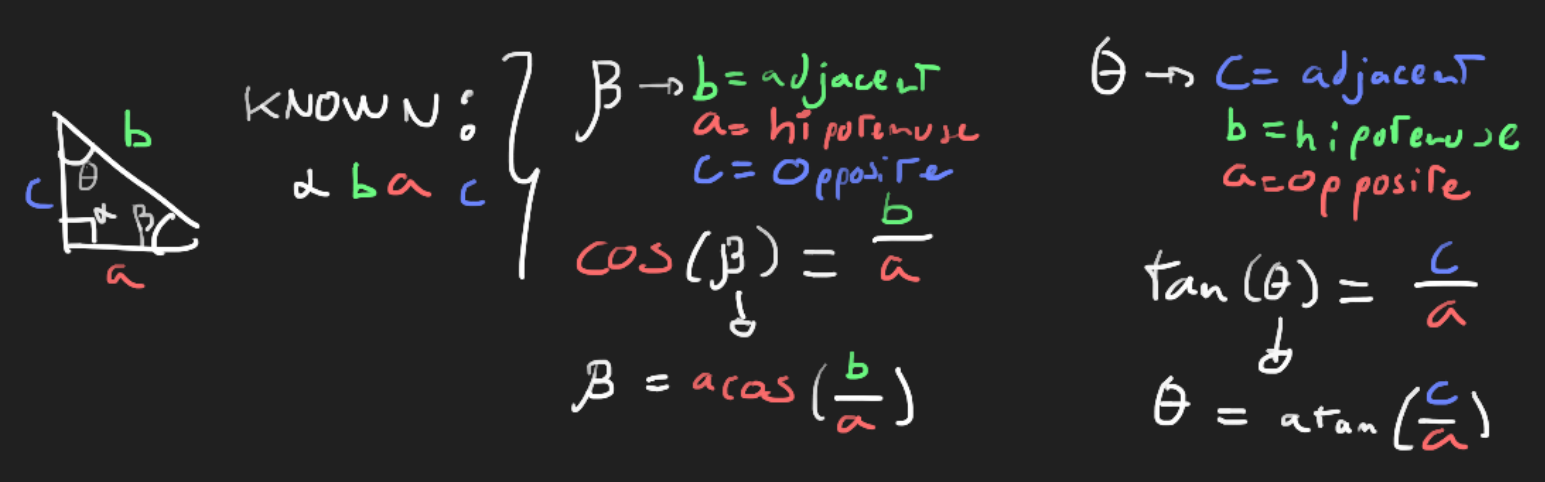 b
θ
c
α β
a
KNOWN:
α b a c
β → b = adjacent
a = hipotenuse
c = opposite
cos(β) = b/a
β = acos(b/a)
θ → c = adjacent
b = hipotenuse
a = opposite
tan(θ) = c/a
θ = atan(c/a)